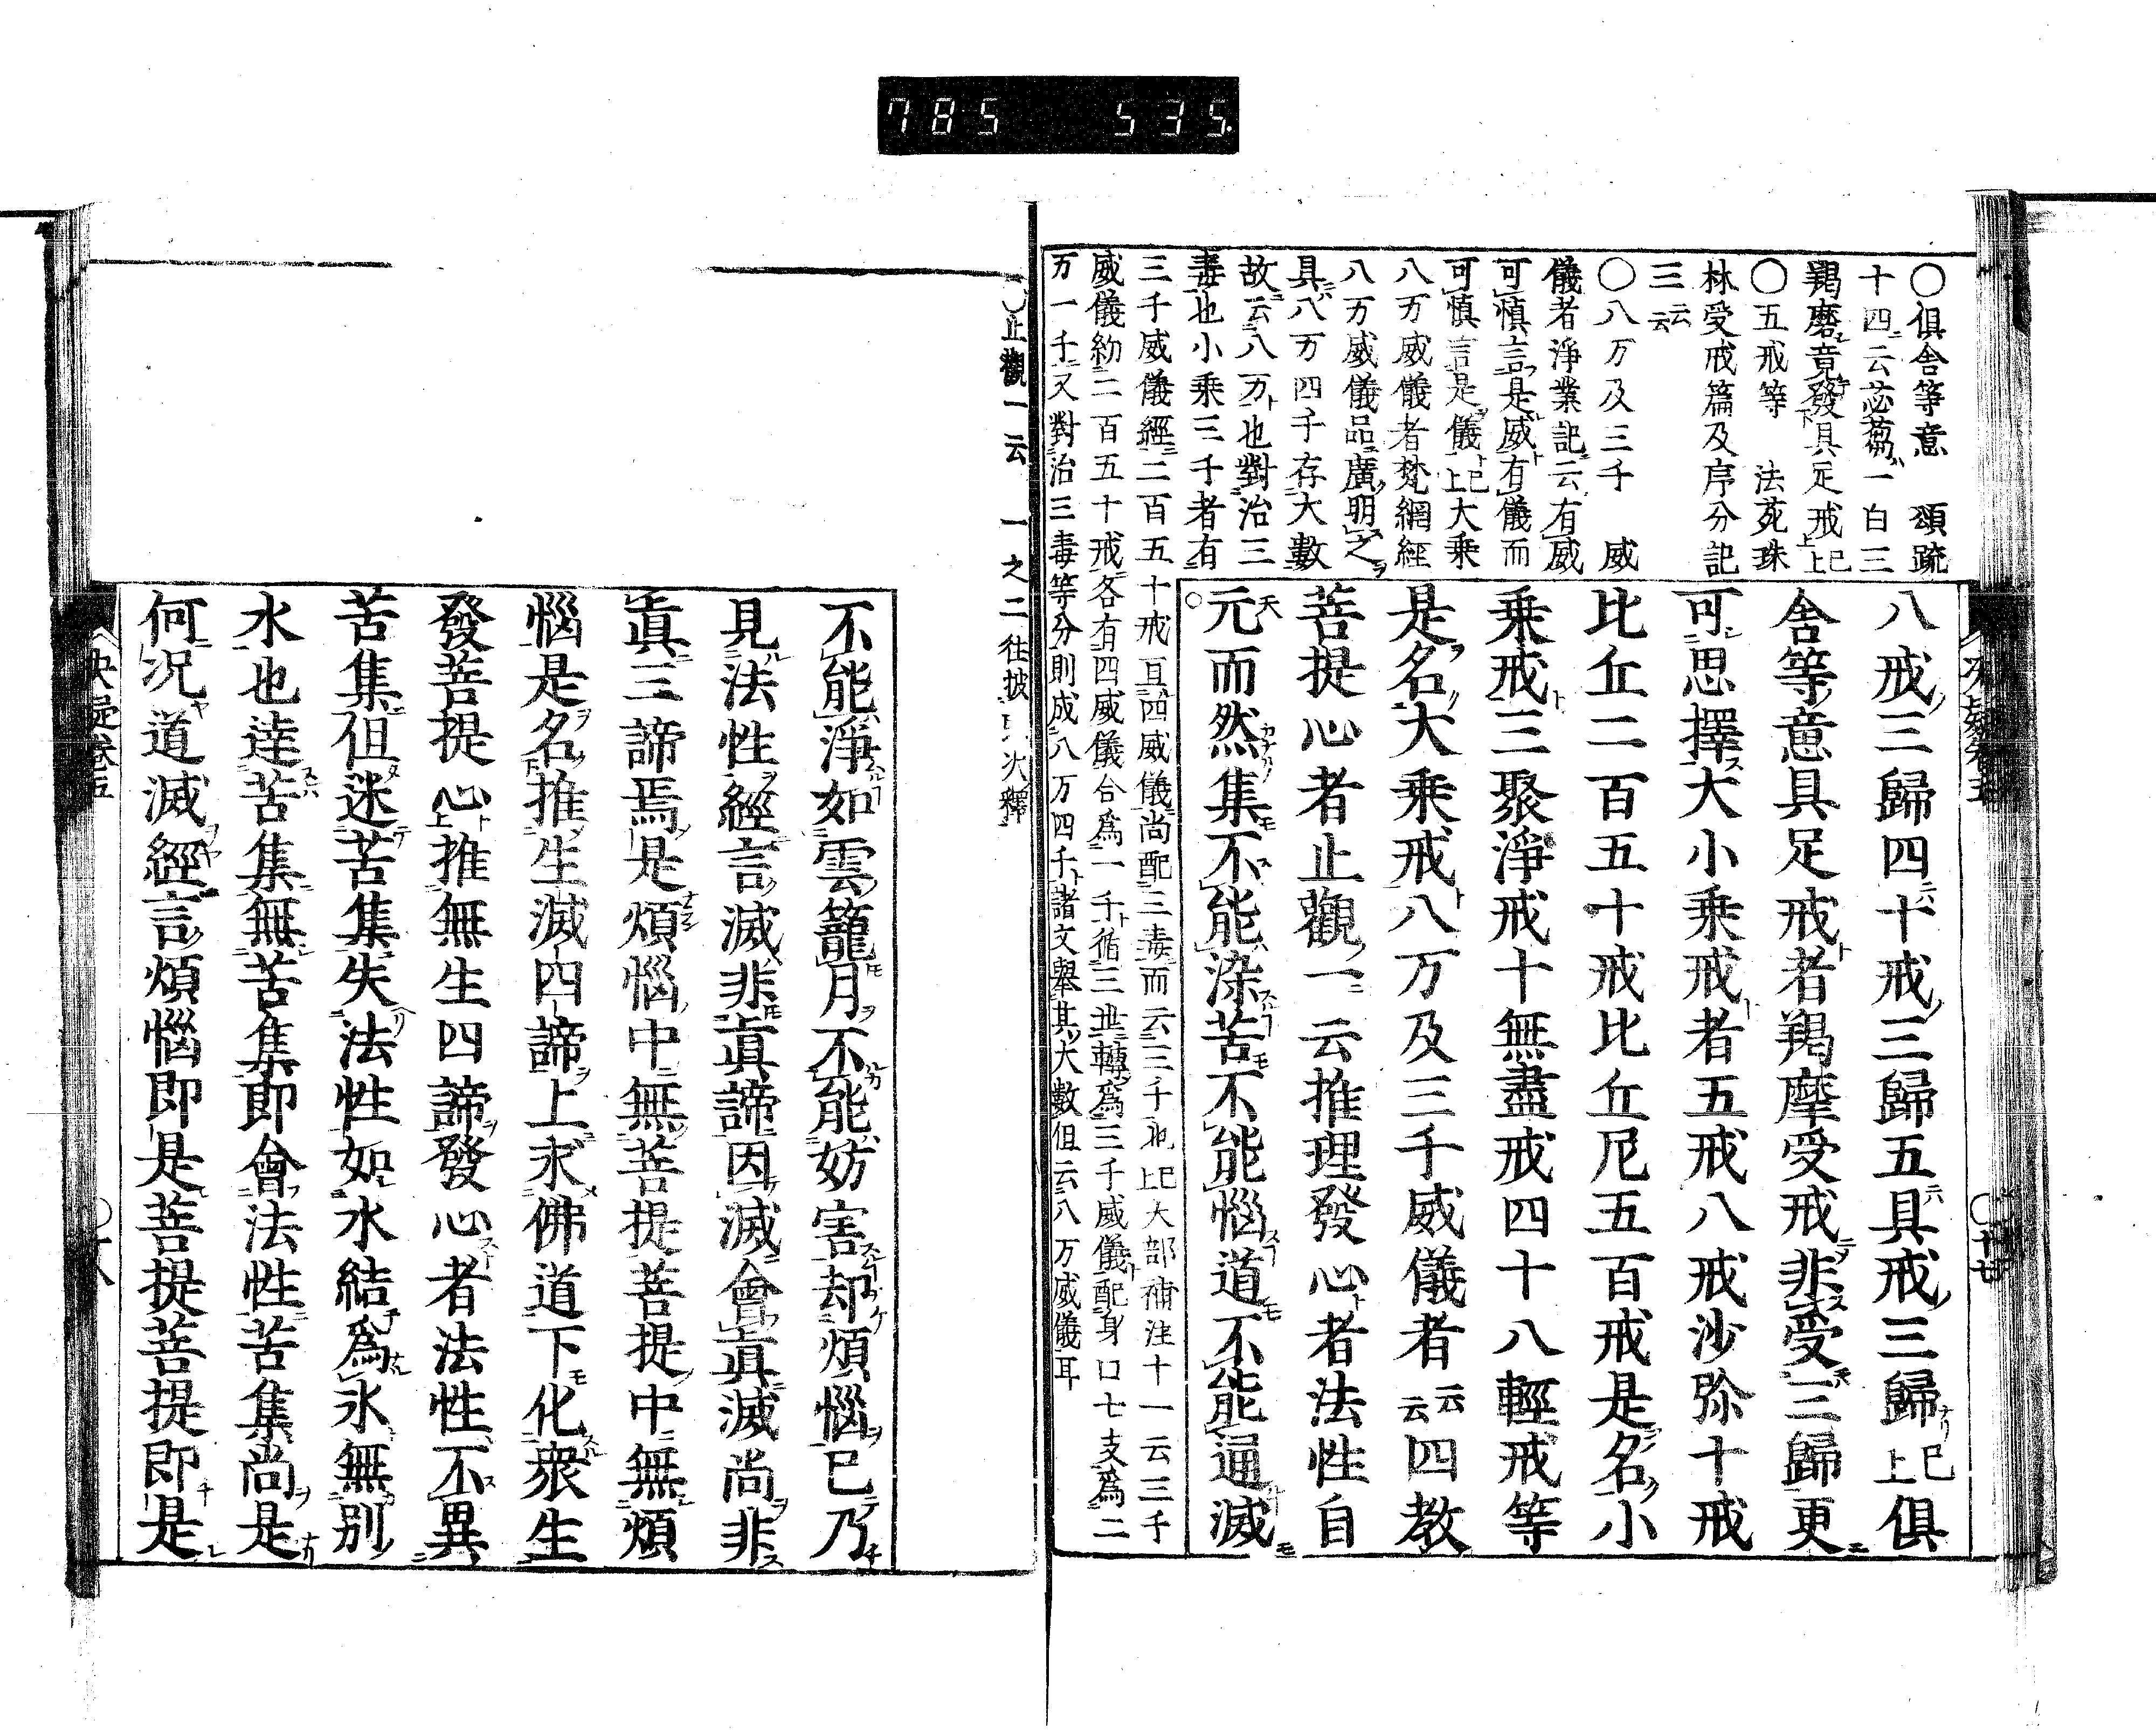 785 535.
〇俱舍等意 頌䟽
十四云苾蒭一白三
羯磨竟發具足戒已上
〇五戒等 法苑珠
林受戒篇及序分記
三云云
〇八万及三千 威
儀者淨業記云有威
可愼言是威有儀而
可愼言是儀已上大乗
八万威儀者梵網經
八万威儀品廣明之
具八万四千存大數
故云八万也對治三
毒也小乗三千者有
三千威儀經二百五十戒互四威儀尚配三毒而云三千也已上大部補注十一云三千
威儀約二百五十戒各有四威儀合爲一千循三世轉爲三千威儀配身口七支爲二
万一千又對治三毒等分則成八万四千諸文舉其大數但云八万威儀耳
八戒三歸四十戒三歸五具戒三歸已上俱
舍等意具足戒者羯摩受戒非受三歸更
可思擇大小乗戒者五戒八戒沙弥十戒
比丘二百五十戒比丘尼五百戒是名小
乗戒三聚淨戒十無盡戒四十八輕戒等
是名大乗戒八万及三千威儀者云云四教
菩提心者止觀一云推理發心者法性自
天而然集不能染苦不能惱道不能逼滅
〇止觀一云 一之二 往披 次釋
不能淨如雲籠月不能妨害却煩惱已乃
見法性經言滅非眞諦因滅會眞滅尚非
眞三諦焉是煩惱中無菩提菩提中無煩
惱是名推生滅四諦上求佛道下化衆生
發菩提心推無生四諦發心者法性不異
苦集但迷苦集失法性如水結爲氷無別
水也達苦集無苦集即會法性苦集尚是
何况道滅經言煩惱即是菩提菩提即是